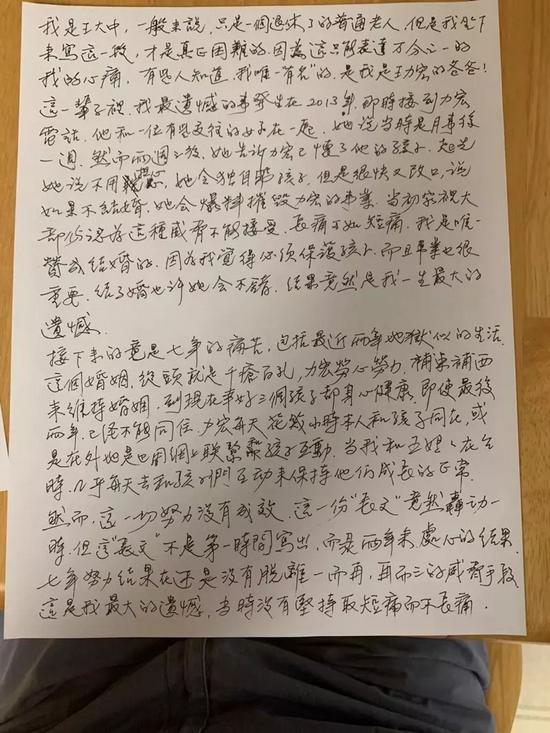 我是王大中，一般來說，只是一個退休了的普通老人，但是我坐下
來寫這一段，才是真正困難的，因為這只能表達万分之一的
我的心痛，有些人知道，我唯一"有名"的，是我是王力宏的爸爸！
這一輩子裡，我最遺憾的事發生在2013年，那時接到力宏
電話，他和一位有些交往的女子在一起，她說當時是月事後
一週，然而兩個月後，她告訴力宏已懷了他的孩子，起先
她說不用擔心，她会独自養孩子，但是很快又改口，說
如果不結婚，她会爆料摧毀力宏的事業，當初家裡大
部份認為這種威脅不能接受，長痛不如短痛，我是唯一
贊成結婚的，因為我覺得必須保護孩子，而且事業也很
重要，結了婚也许她会不錯，結果竟然是我一生最大的
遺憾．
接下來的竟是七年的痛苦，包括最近兩年地獄似的生活．
這個婚姻，從頭就是千瘡百孔，力宏勞心勞力，補東補西
來維持婚姻，到現在幸好三個孩子都身心健康，即使最後
兩年，已经不能同住，力宏每天花幾小時本人和孩子同在，或
是在外地也用網上联繫和孩子互動，當我和五姐在台
時，几乎每天去和孩子們互动來保持他们成長的正常．
然而，這一切努力没有成效．這一份"長文"竟然轟动一
時，但這"長文"不是第一時間寫出，而是兩年來，處心的結果．
七年努力結果在还是没有脱離一而再，再而三的威脅手段
這是我最大的遺憾，當時没有堅持取短痛而不長痛．